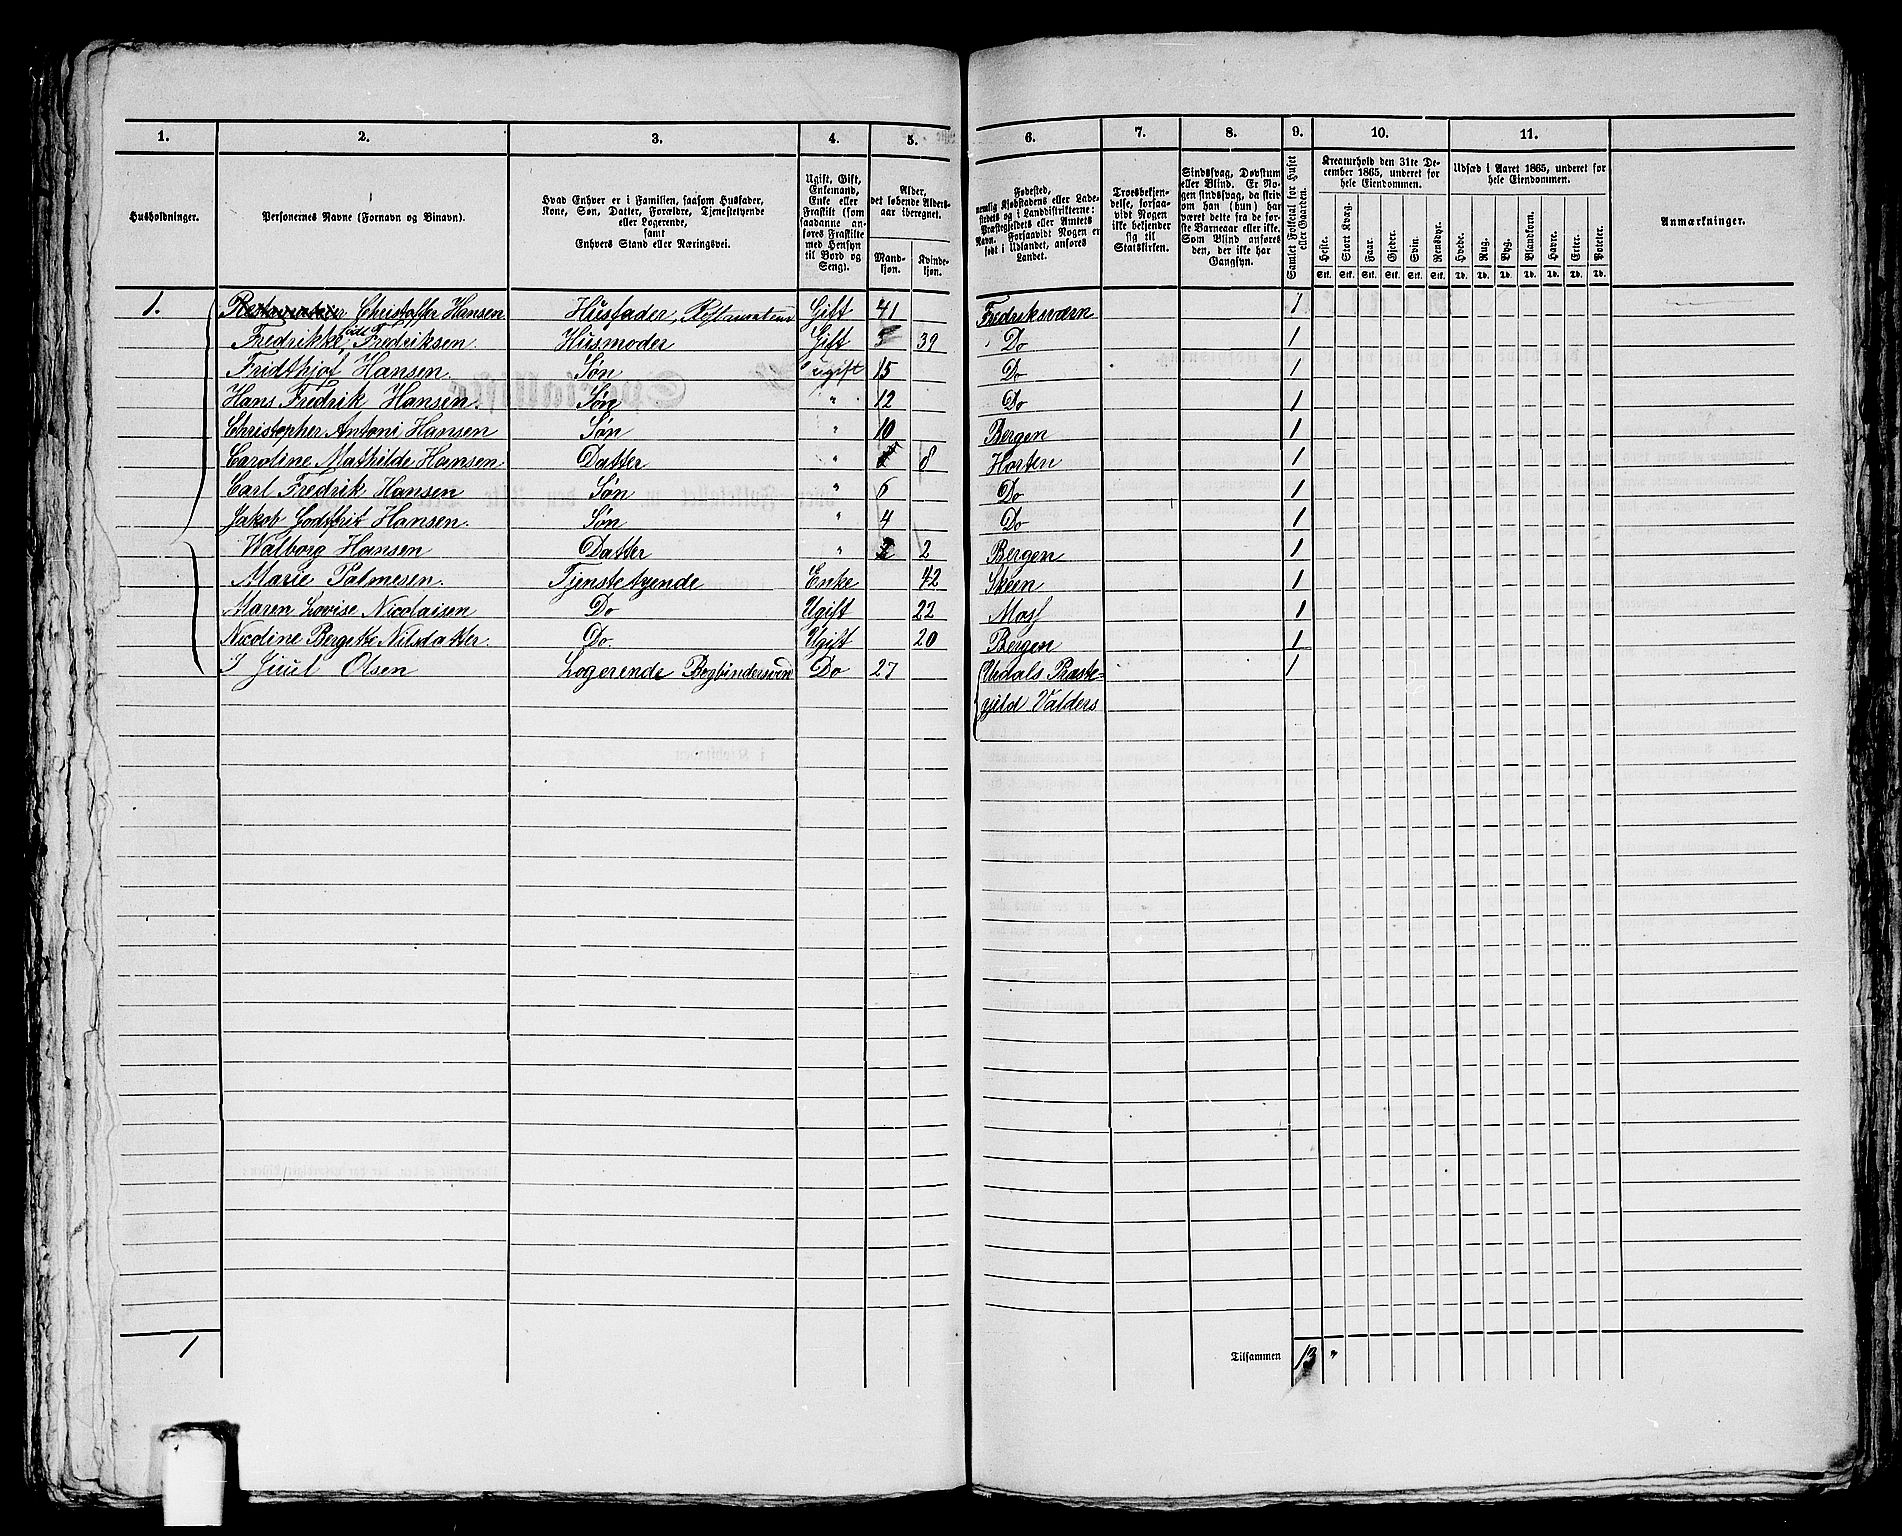 1. 2. 3. 4. 5. 6. 7. 8. 9. 10. 11.
Husholdninger.
Personernes Navne (Fornavn og Binavn).
Hvad Enhver er i Familien, saasom Husfader,
Kone, Søn, Datter, Forældre, Tjenestetyende
eller Logerende,
samt
Enhvers Stand eller Næringsvei.
Ugift, Gift,
Enkemand,
Enke eller
Fraskilt (som
saadanne an-
føres Fraskilte
med Hensyn
til Bord og
Seng).
Alder,
det løbende Alders-
aar iberegnet.
Mand-
kjøn.
Kvinde-
kjøn.
Fødested,
nemlig Kjøbstadens eller Lade-
stedets og i Landdistrikterne:
Præstegjeldets eller Amtets
Navn. Forsaavidt Nogen er
født i Udlandet, anføres
Landet.
Troesbekjen-
delse, forsaa-
vidt Nogen
ikke bekjender
sig til
Statskirken.
Sindssvag, Døvstum
eller Blind. Er No-
gen sindssvag, da skriv
om han (hun) har
været dette fra de før-
ste Barneaar eller ikke.
Som Blind anføres
den, der ikke har
Gangsyn.
Samlet Folketal for Huset
eller Gaarden.
Kreaturhold den 31te De-
cember 1865, underet for
hele Eiendommen.
Heste. Stort Kvæg. Faar. Gjeder. Svin. Rensdyr.
Stk. Stk. Stk. Stk. Stk. Stk.
Udsæd i Aaret 1865, underet for
hele Eiendommen.
Hvede. Rug. Byg. Blandkorn. Havre. Erter. Poteter.
Td. Td. Td. Td. Td. Td. Td.
Anmærkninger.
1. Christoffer Hansen Husfader, Gift 41 Fredriksværn 1
Fredrikke født Fredriksen Husmoder Gift 39 Do 1
Fridthjof Hansen. Søn ugift 15 Do 1
Hans Fredrik Hansen. Søn " 12 Do 1
Christopher Antoni Hansen Søn " 10 Bergen 1
Caroline Mathilde Hansen Datter " 8 Horten 1
Carl Fredrik Hansen Søn " 6 Do 1
Jakob Godtfrit Hansen. Søn " 4 Do 1
Walborg Hansen Datter " 2 Bergen 1
Marie Palmesen. Tjenstetyende Enke 42 Skeen 1
Maren Lovise Nicolaisen Do Ugift 22 Moss 1
Nicoline Bergette Nilsdatter. Do. Ugift 20 Bergen 1
J Juul Olsen Logerende Bogbindersvend Do 27 Urdals Præste- 1
gjeld Valders
1 Tilsammen 13 "